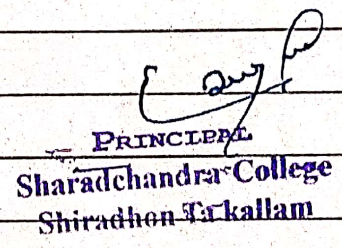 PRINCIPAL
Sharadchandra College
Shiradhon Ta kallam